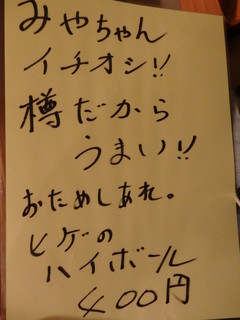 みやちゃん
イチオシ!!
樽だから
うまい!!
おためしあれ。
ヒゲの
ハイボール
400円